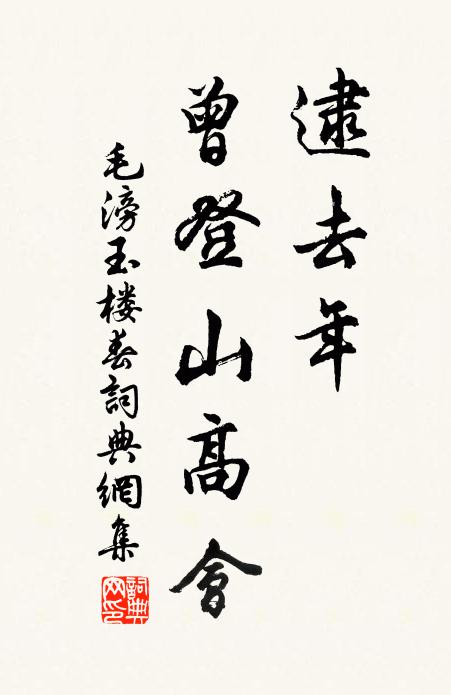 逮去年
曾登山高會
毛滂玉楼春詞典網集
詞典网印